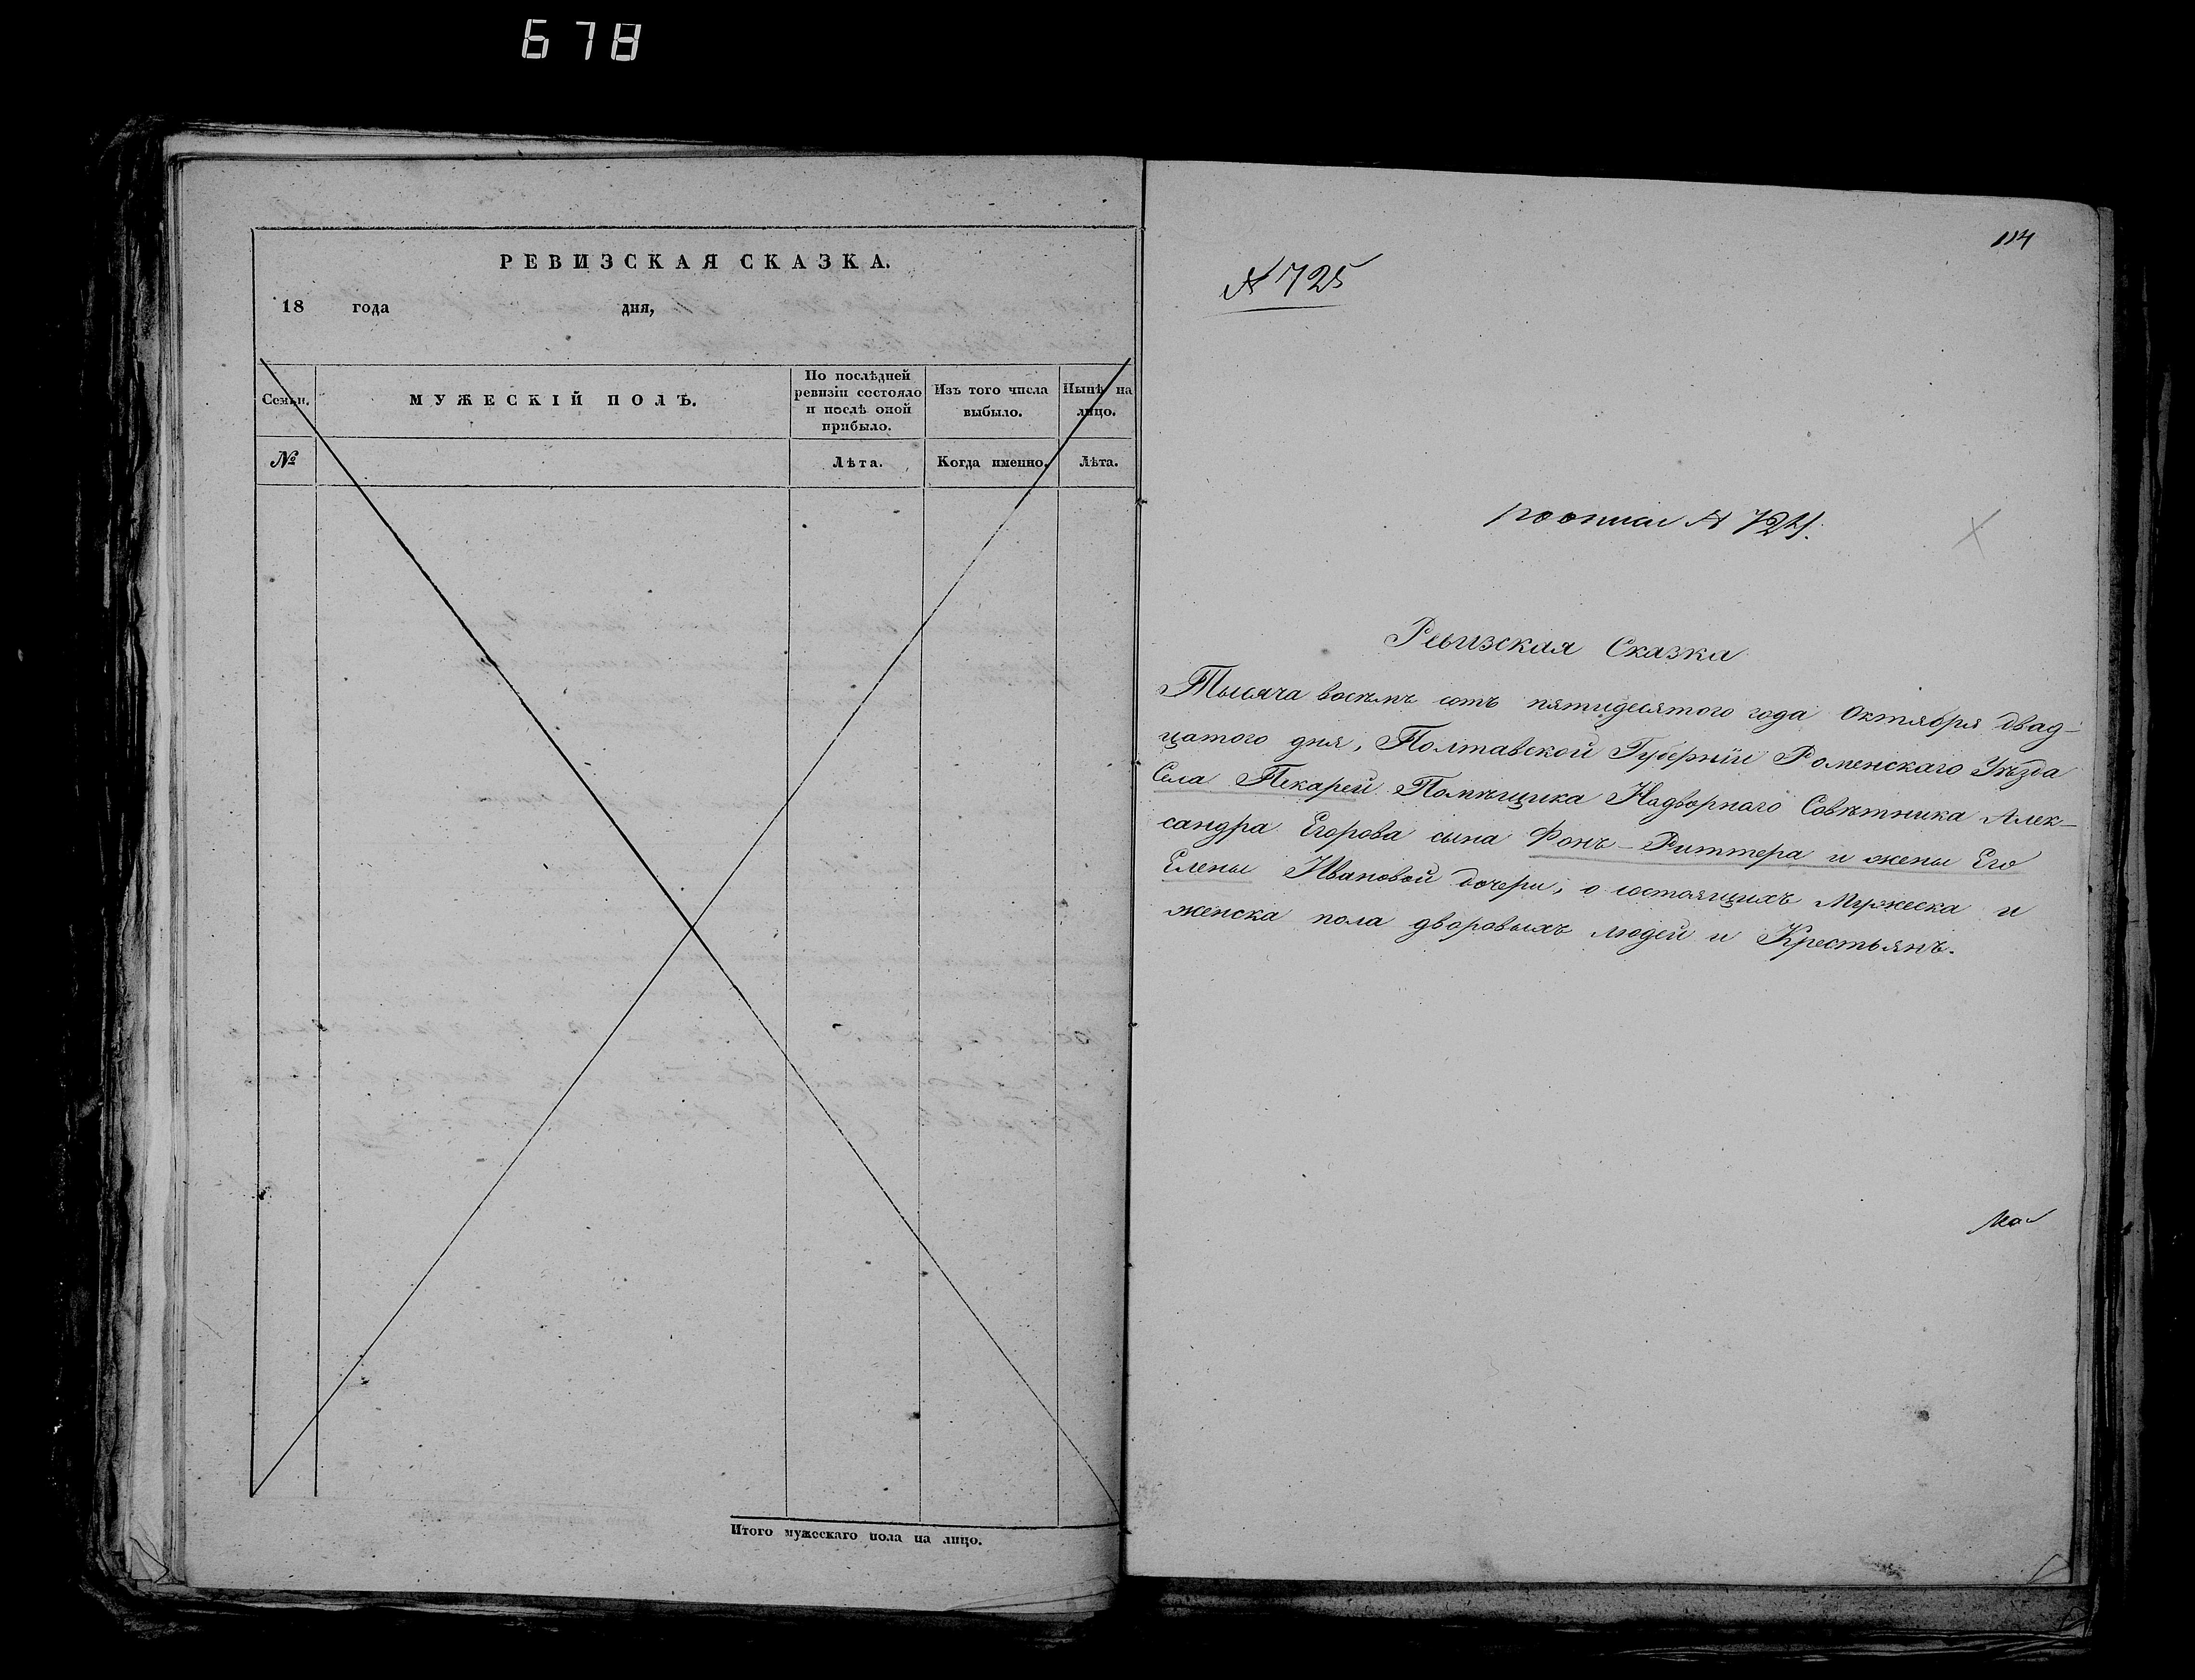 678
РЕВИЗСКАЯ СКАЗКА.
18 года дня,
Семьи.
МУЖЕСКІЙ ПОЛЪ.
По послѣдней
ревизіи состояло
и послѣ оной
прибыло.
Изъ того числа
выбыло.
Нынѣ на
лицо.
№
Лѣта.
Когда именно.
Лѣта.
Итого мужескаго пола на лицо.
114
№ 725
по описи № 721.
Ревизская Сказка
Тысяча восемь сотъ пятидесятого года Октября двад-
цатого дня, Полтавской Губерніи Роменскаго Уѣзда
Села Пекарей Помѣщика Надворнаго Совѣтника Алек-
сандра Егорова сына Фонъ-Риттера и жены Его
Елены Ивановой дочери, о состоящихъ Мужеска и
женска пола дворовыхъ людей и Крестьянъ.